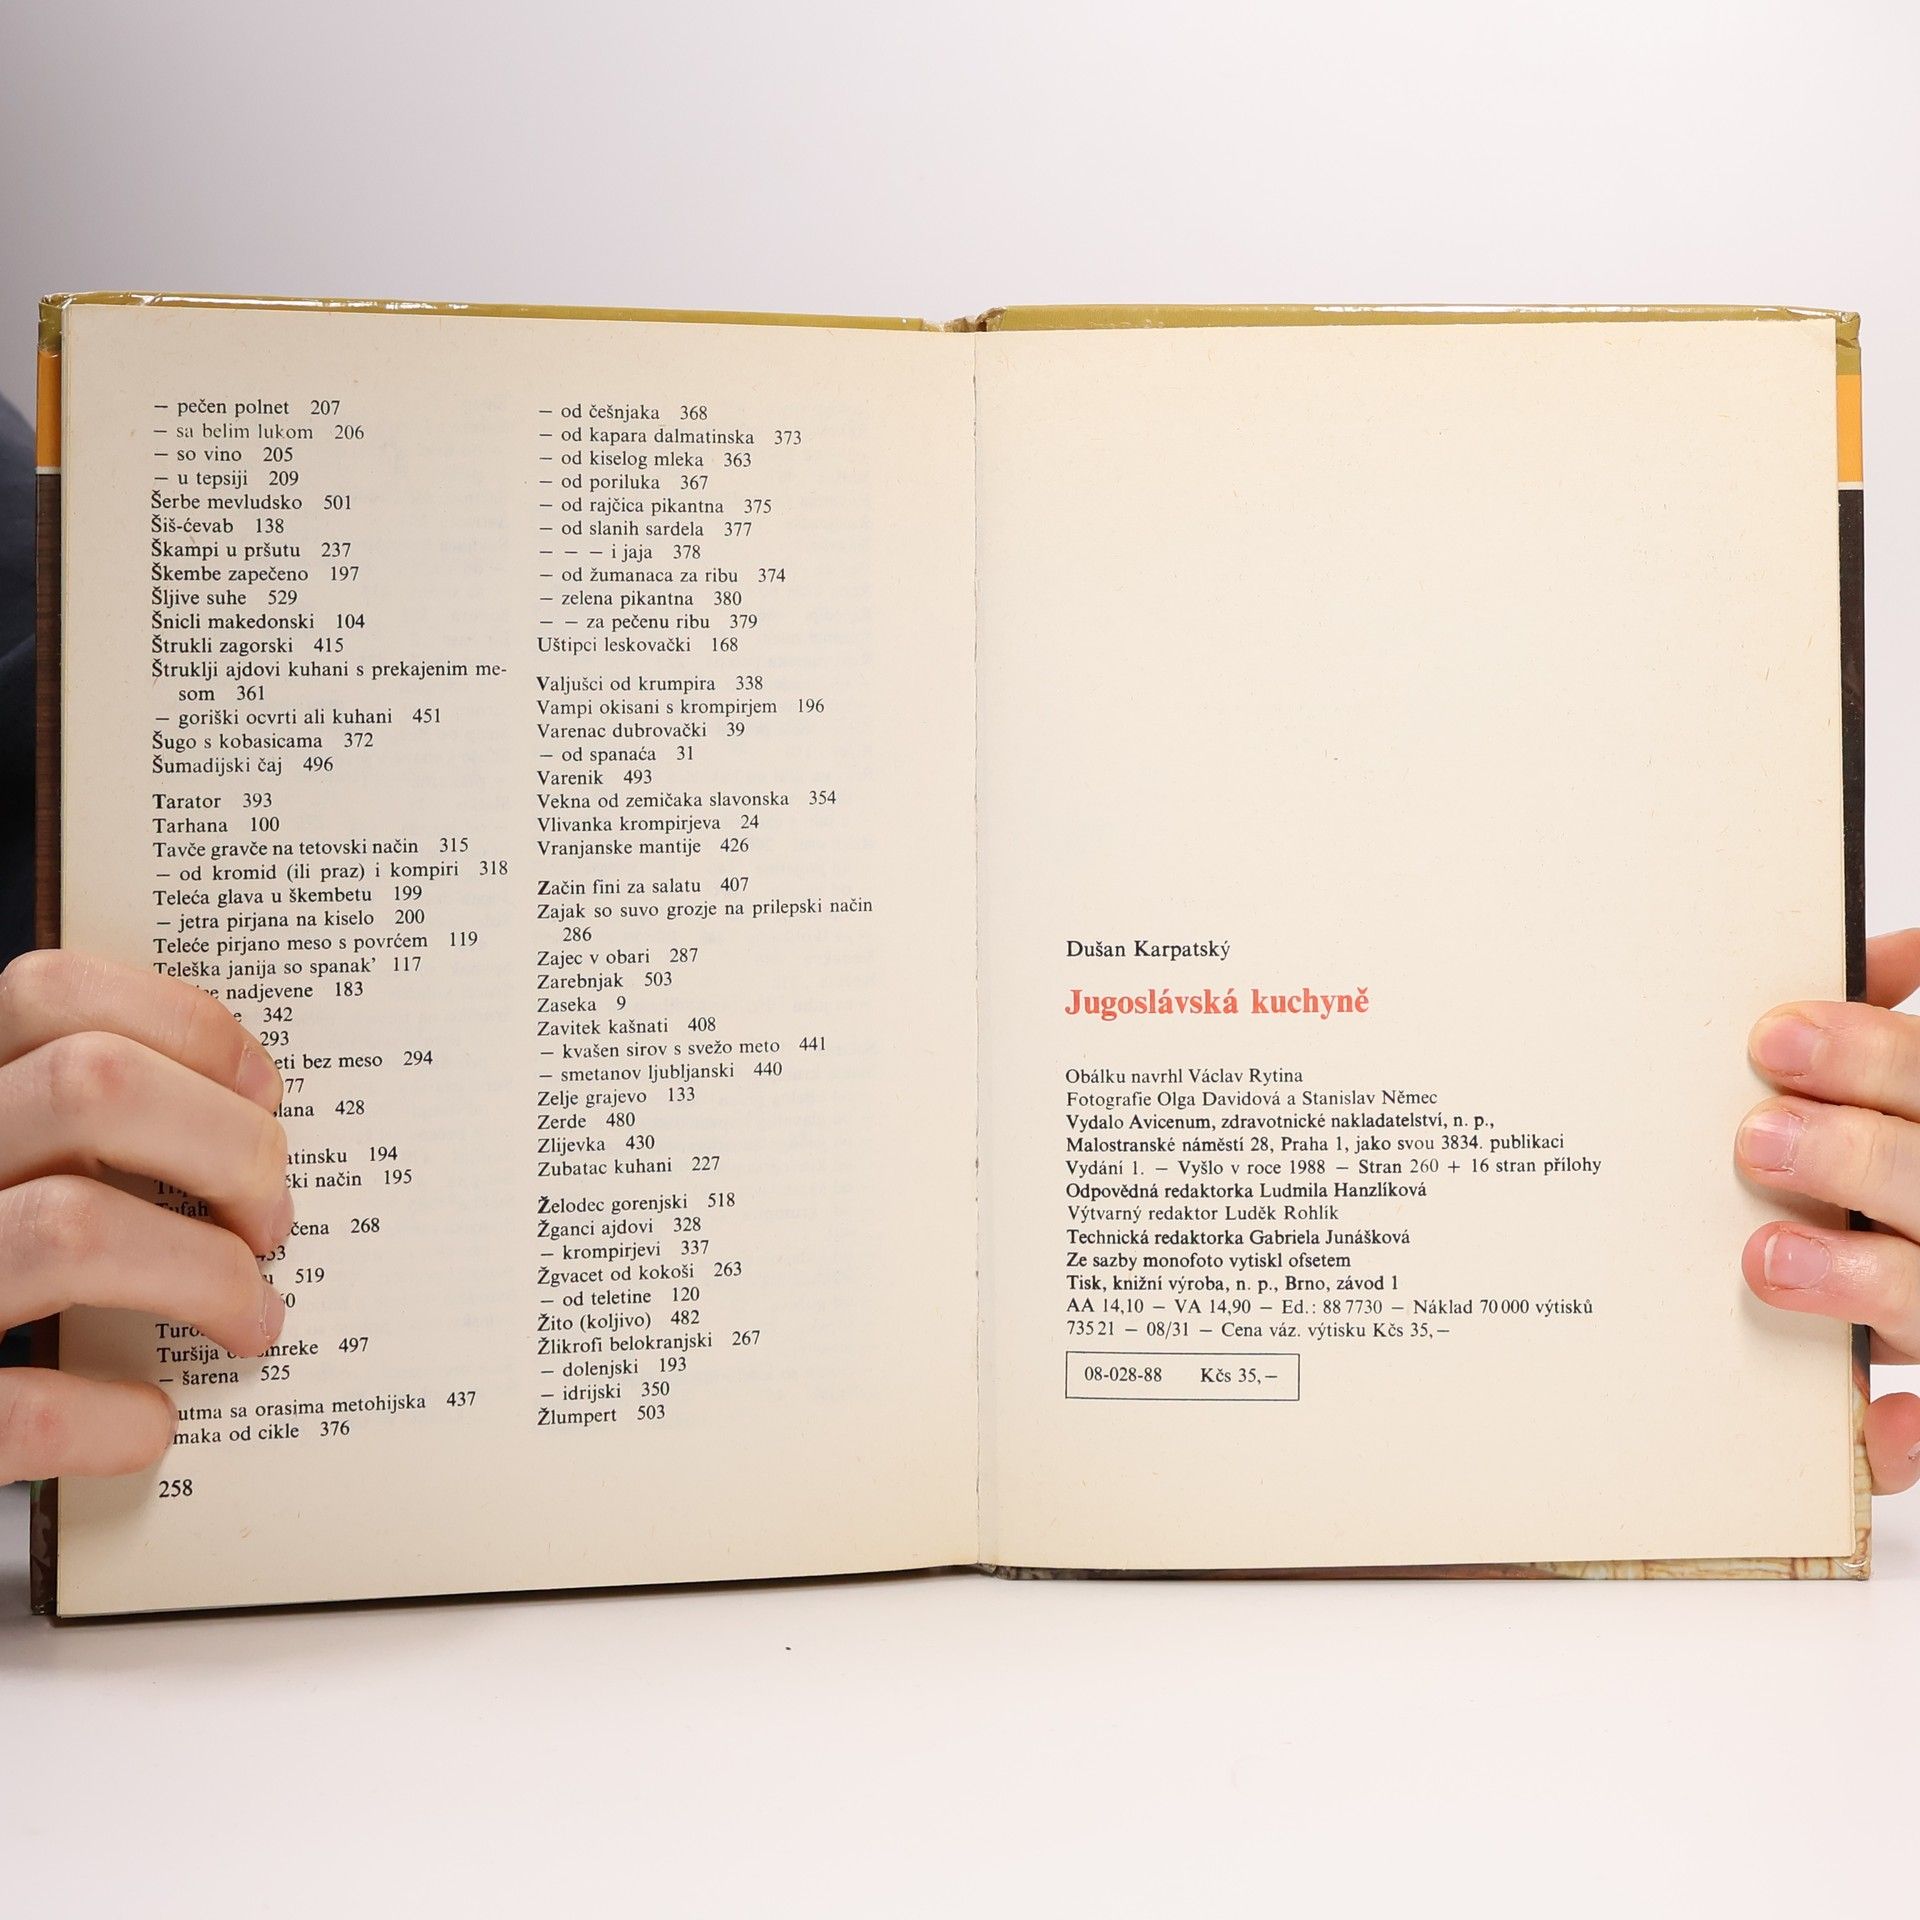 – pečen polnet 207
– sa belim lukom 206
– so vino 205
– u tepsiji 209
Šerbe mevludsko 501
Šiš-ćevab 138
Škampi u pršutu 237
Škembe zapečeno 197
Šljive suhe 529
Šnicli makedonski 104
Štrukli zagorski 415
Štruklji ajdovi kuhani s prekajenim me-
som 361
– goriški ocvrti ali kuhani 451
Šugo s kobasicama 372
Šumadijski čaj 496
Tarator 393
Tarhana 100
Tavče gravče na tetovski način 315
– od kromid (ili praz) i kompiri 318
Teleća glava u škembetu 199
– jetra pirjana na kiselo 200
Teleće pirjano meso s povrćem 119
Teleška janija so spanak’ 117
nadjevene 183
342
293
bez meso 294
77
428
194
način 195
268
519
Turšija 497
– šarena 525
sa orasima metohijska 437
od cikle 376
258
– od češnjaka 368
– od kapara dalmatinska 373
– od kiselog mleka 363
– od poriluka 367
– od rajčica pikantna 375
– od slanih sardela 377
– – – i jaja 378
– od žumanaca za ribu 374
– zelena pikantna 380
– – za pečenu ribu 379
Uštipci leskovački 168
Valjušci od krumpira 338
Vampi okisani s krompirjem 196
Varenac dubrovački 39
– od spanaća 31
Varenik 493
Vekna od zemičaka slavonska 354
Vlivanka krompirjeva 24
Vranjanske mantije 426
Začin fini za salatu 407
Zajak so suvo grozje na prilepski način
286
Zajec v obari 287
Zarebnjak 503
Zaseka 9
Zavitek kašnati 408
– kvašen sirov s svežo meto 441
– smetanov ljubljanski 440
Zelje grajevo 133
Zerde 480
Zlijevka 430
Zubatac kuhani 227
Želodec gorenjski 518
Žganci ajdovi 328
– krompirjevi 337
Žgvacet od kokoši 263
– od teletine 120
Žito (koljivo) 482
Žlikrofi belokranjski 267
– dolenjski 193
– idrijski 350
Žlumpert 503
Dušan Karpatský
Jugoslávská kuchyně
Obálku navrhl Václav Rytina
Fotografie Olga Davidová a Stanislav Němec
Vydalo Avicenum, zdravotnické nakladatelství, n. p.,
Malostranské náměstí 28, Praha 1, jako svou 3834. publikaci
Vydání 1. – Vyšlo v roce 1988 – Stran 260 + 16 stran přílohy
Odpovědná redaktorka Ludmila Hanzlíková
Výtvarný redaktor Luděk Rohlík
Technická redaktorka Gabriela Junášková
Ze sazby monofoto vytiskl ofsetem
Tisk, knižní výroba, n. p., Brno, závod 1
AA 14,10 – VA 14,90 – Ed.: 88 7730 – Náklad 70 000 výtisků
735 21 – 08/31 – Cena váz. výtisku Kčs 35,–
08-028-88 Kčs 35,–